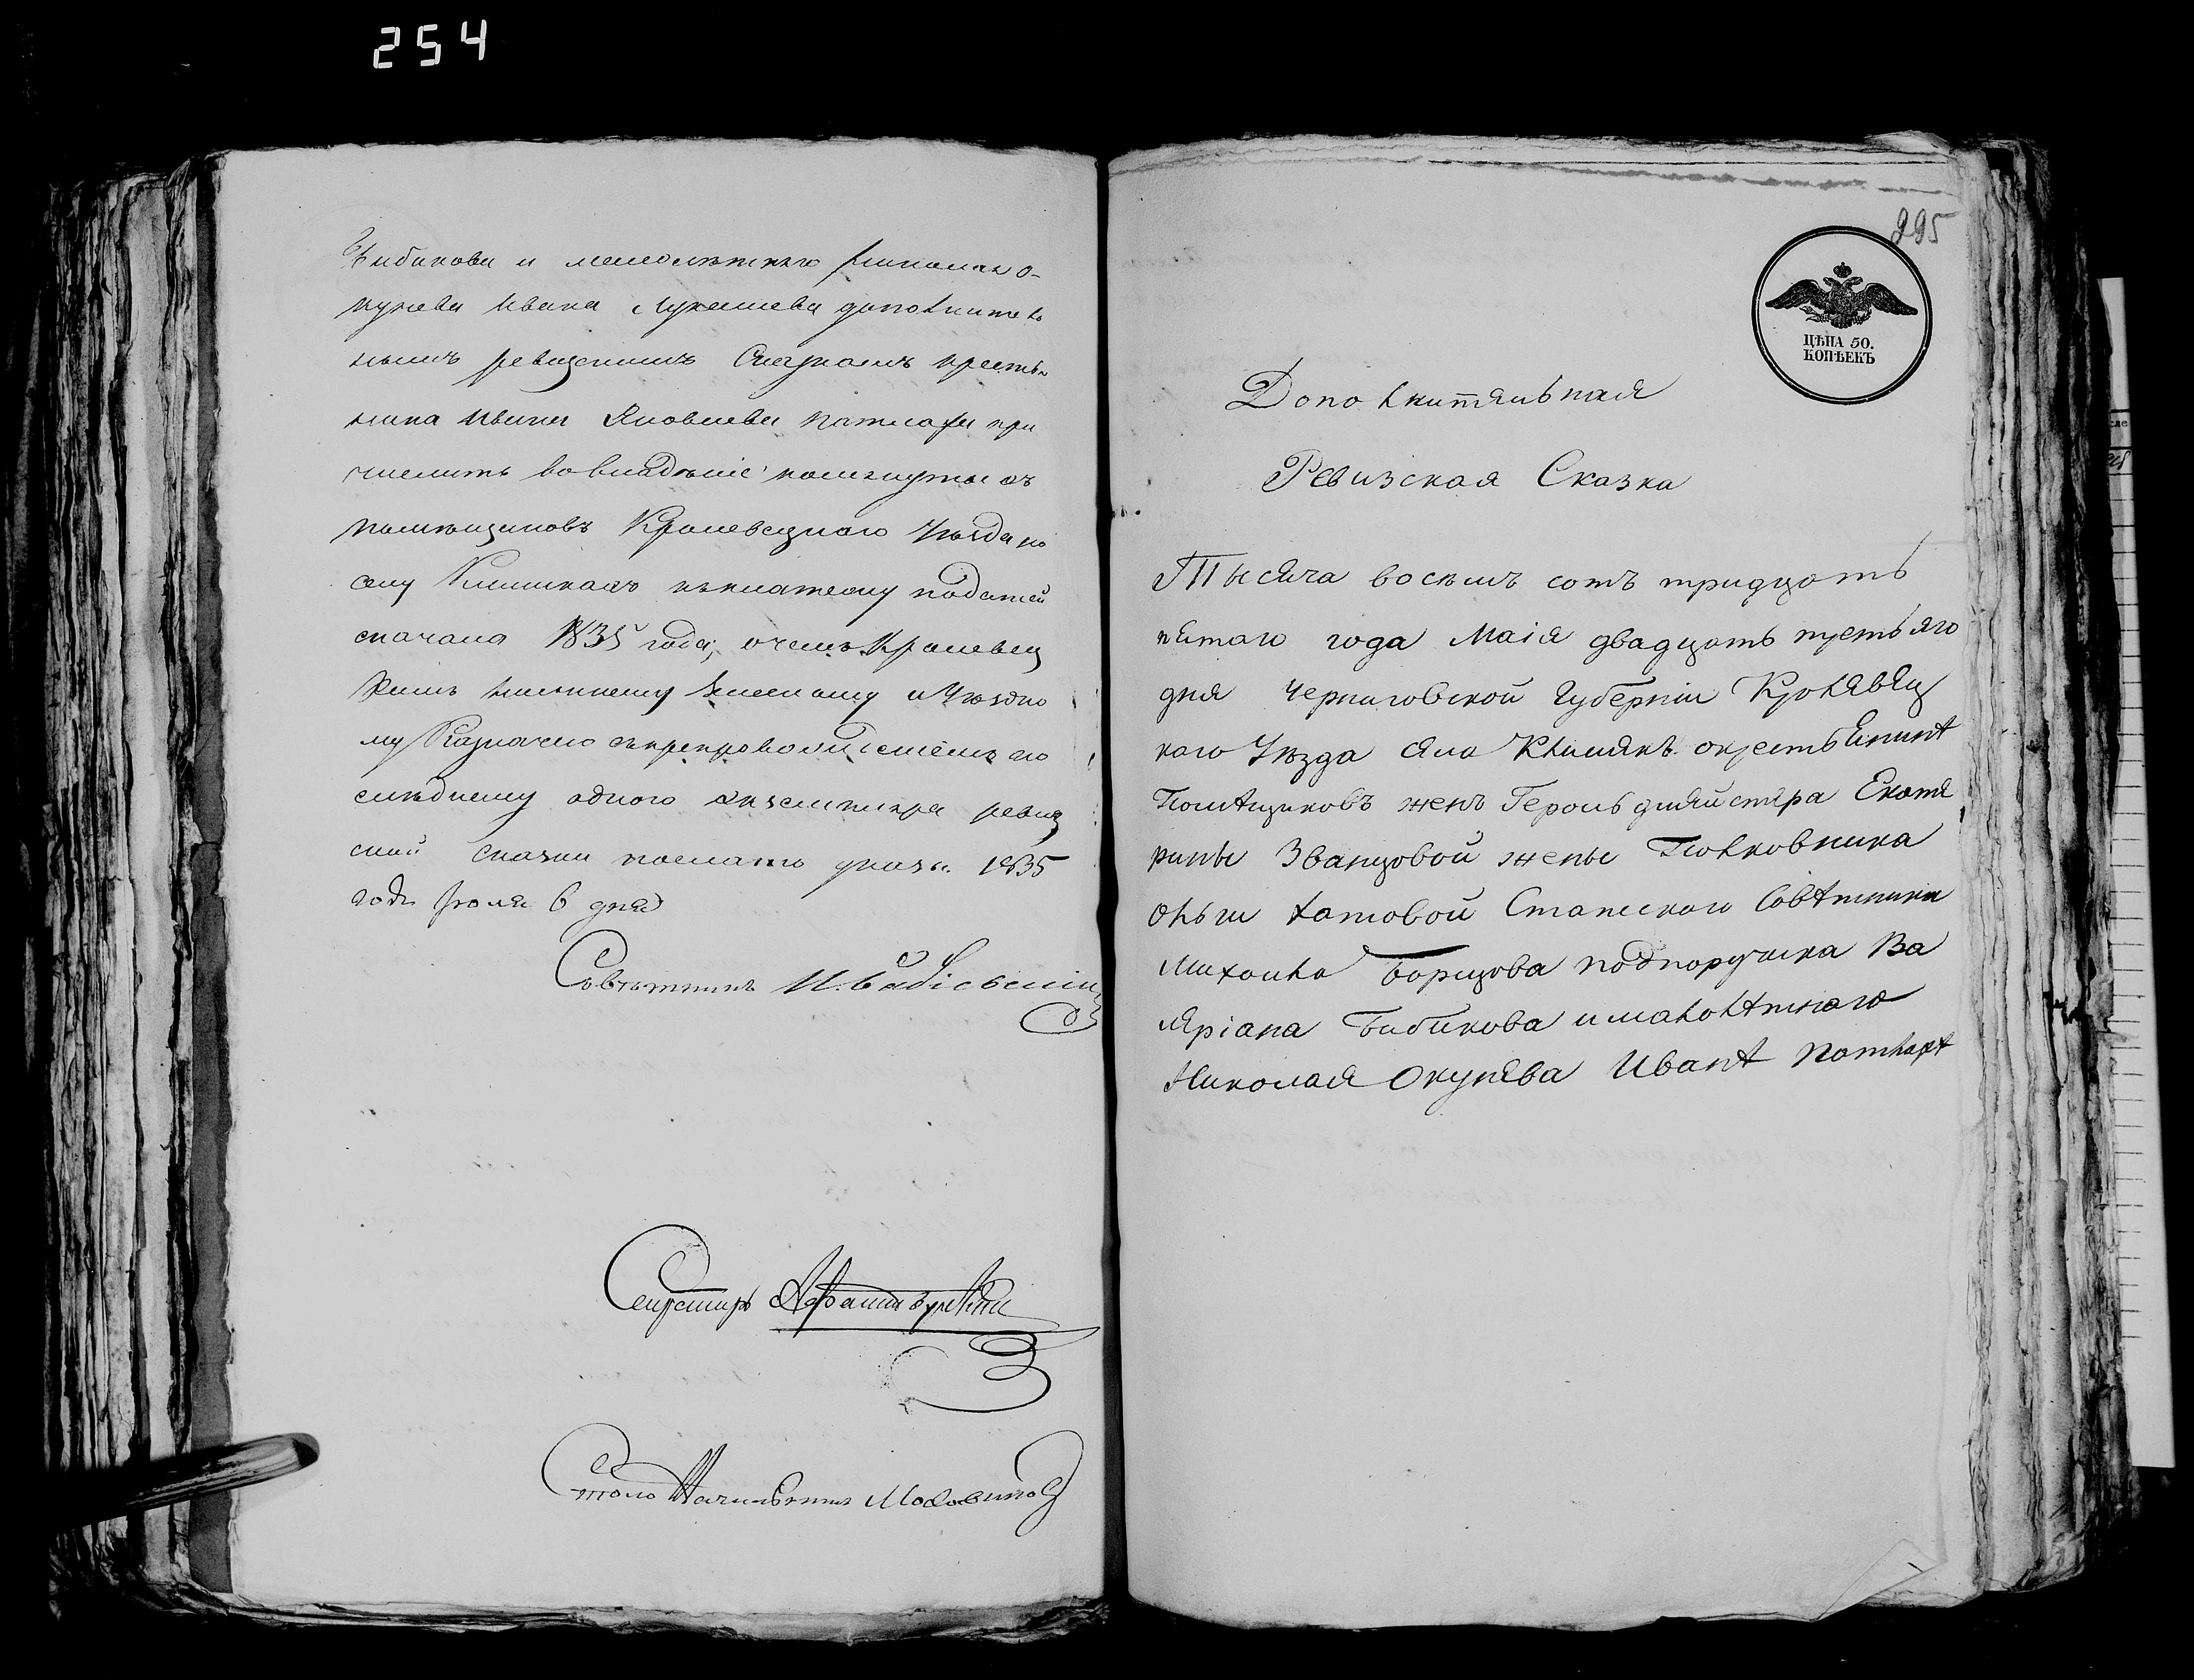 254
Бибикова и малолѣтнаго Николая О-
кунева Ивана Лукашева дополнитель
нымъ ревизскимъ Сказкамъ крестья
нина Ивана Яковлева Патлаха при
числить во владѣніе помянутыхъ
помѣщиковъ Кролевецкаго Уѣзда по
селу Клишкахъ къ платежу податей
сначала 1835 года; о чемъ Кролевец
кимъ Земскому и Уѣздно
му Казначею съ препровожденіемъ по
слѣднему одного экземпляра ревиз
ской сказки послать указы. 1835
года Іюля 6 дня
Совѣтникъ
Секретарь
Столоначальникъ
995
ЦѢНА 50.
КОПѢЕКЪ
Дополнительная
Ревизская Сказка
Тысяча восемъ сотъ тридцать
пятаго года Маія двадцать третьяго
дня Черниговской Губерніи Кролевец
каго Уѣзда села Клишекъ о крестьянинѣ
Помѣщиковъ женъ Герольдмейстера Екате
рины Званцовой жены Полковника
Ольги Хатовой Статскаго Совѣтника
Михаила Борщова подпоручика Ва
леріана Бибикова и малолѣтнаго
Николая Окунева Иванѣ Патлахѣ